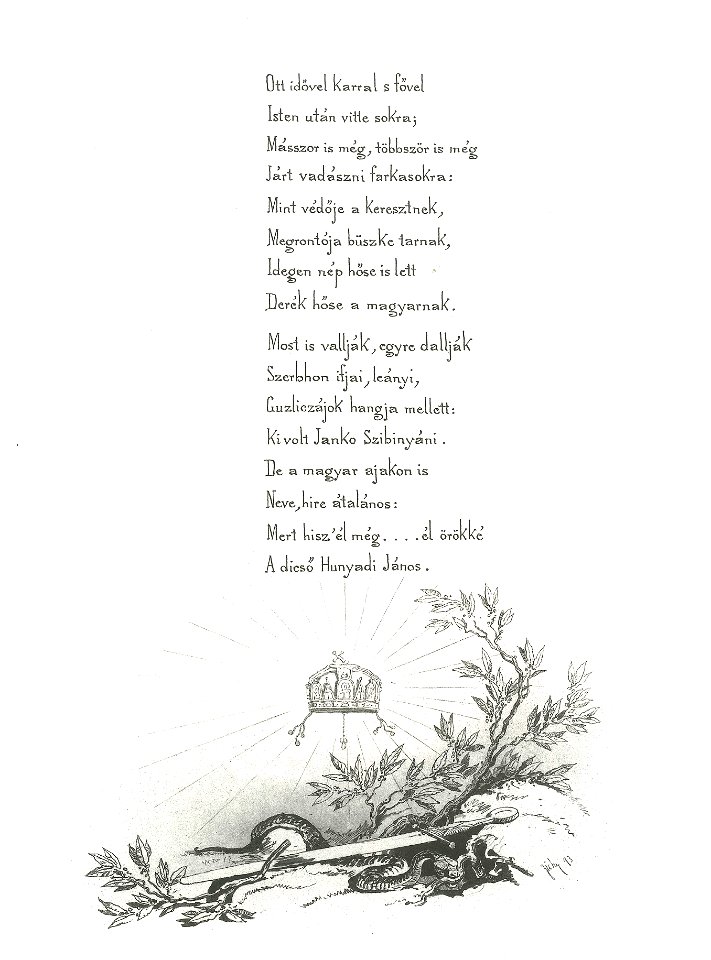 Ott idővel karral s fővel
Isten után vitte sokra;
Másszor is még, többször is még
Járt vadászni farkasokra:
Mint védője a keresztnek,
Megrontója büszke tarnak,
Idegen nép hőse is lett
Derék hőse a magyarnak.
Most is vallják, egyre dallják
Szerbhon ifjai, leányi,
Guzliczájok hangja mellett:
Ki volt Janko Szibinyáni.
De a magyar ajakon is
Neve, hire átalános:
Mert hisz' él még. . . . él örökké
A dicső Hunyadi János.